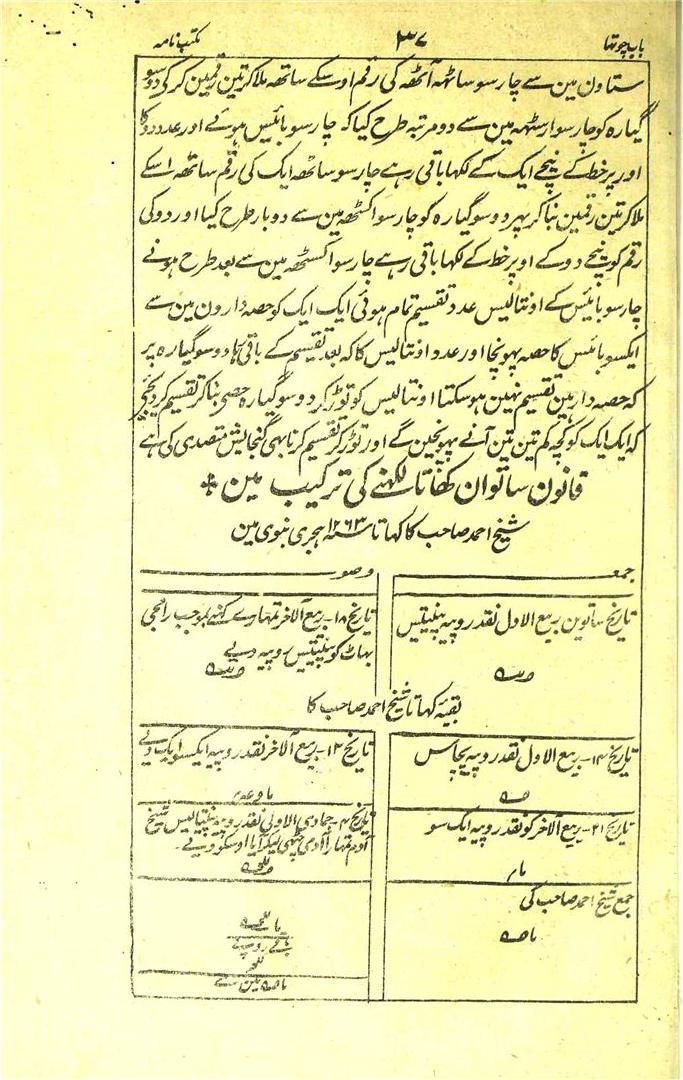 باب چوتھا ۲۳۷ مکتب نامہ
ستاون مین سے چار سو ساٹہہ آٹھہ کی رقم اوسکے ساتھہ ملاکر تین رقمین کر کی دو سو
گیارہ کو چار سو اڑسٹہہ مین سے دو مرتبہ طرح کیا کہ چار سو بائیس ہوئے اور عدد دو کا
اوپر خط کے نیچے ایک کے لکہا باقی رہے چار سو ساٹھہ ایک کی رقم ساتھہ اسکے
ملاکر تین رقمین بناکر پہر دو سو گیارہ کو چار سو اکسٹھہ مین سے دو بار طرح کیا اور دو کی
رقم کو نیچے دو کے اوپر خط کے لکہا باقی رہے چار سو اکسٹھہ مین سے بعد طرح ہونے
چار سو بائیس کے اونتالیس عدد تقسیم تمام ہوئی ایک ایک کو حصہ دارون مین سے
ایکسو بائیس کا حصہ پہونچا اور عدد اونتالیس کا کہ بعد تقسیم کے باقی رہا دو سو گیارہ پر
کہ حصہ دار ہین تقسیم نہین ہوسکتا اونتالیس کو توڑ کر دو سو گیارہ حصے بناکر تقسیم کر دیجئے
کہ ایک ایک کو کچہ کم تین تین آنے پہونچین گے اور توڑ کر تقسیم کرنا بہی گنجایش متصدی کی ہے
قانون ساتوان کھاتا لکہنے کی ترکیب مین
شیخ احمد صاحب کا کہاتا سنہ ۱۲۶۳ ہجری نبوی مین
جمع
تاریخ ساتوین ربیع الاول نقد روپیہ پینتیس
وصول
تاریخ ۱۸۔ ربیع الآخر تمہارے کہنے بموجب رامجی
بہاٹ کو پینتیس روپیہ دیے
بقیہ کہاتا شیخ احمد صاحب کا
تاریخ ۱۴۔ ربیع الاول نقد روپیہ پچاس
تاریخ ۲۱۔ ربیع الآخر کو نقد روپیہ ایک سو
جمع شیخ احمد صاحب کی
تاریخ ۱۳۔ ربیع الآخر نقد روپیہ ایکسو ایک دیے
تاریخ ۴۔ جمادی الاولیٰ نقد روپیہ پینتالیس شیخ
آدم تمہارا آدمی چٹھی لیکر آیا اوسکو دیے۔